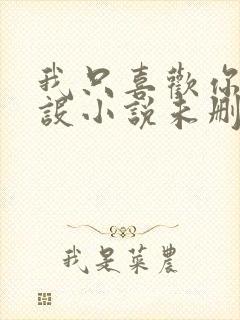 我只喜歡你
設小說未刪
我是菜農